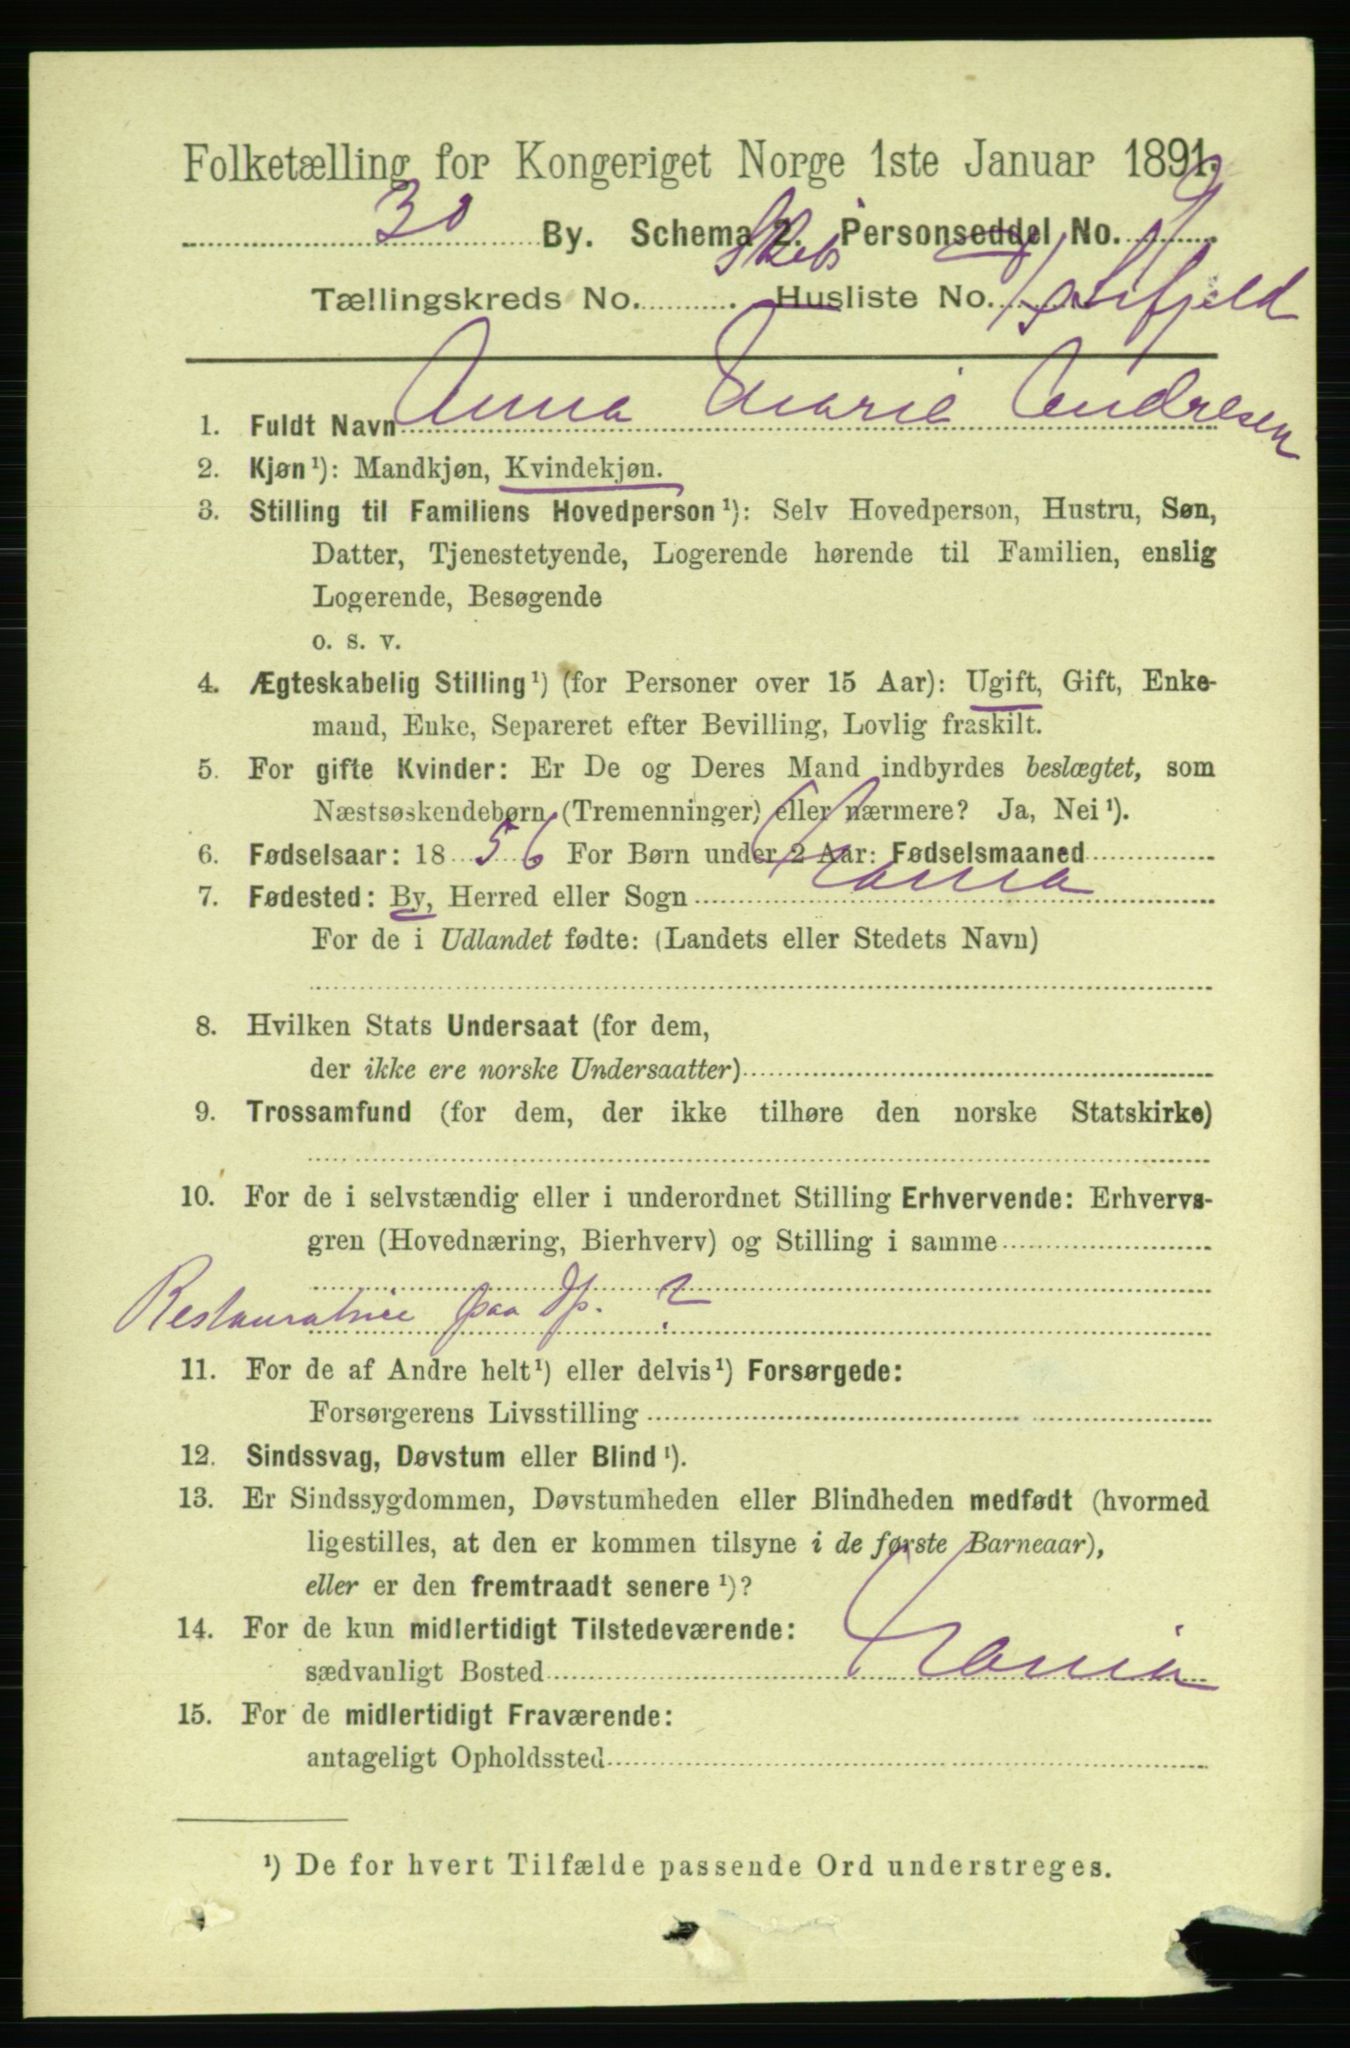 Folketælling for Kongeriget Norge 1ste Januar 1891.
30 By. Schema 2. Personseddel No.
Skibs
Tællingskreds No. Husliste No.
1. Fuldt Navn Anna Marie Andresen
2. Kjøn ¹): Mandkjøn, Kvindekjøn.
3. Stilling til Familiens Hovedperson ¹): Selv Hovedperson, Hustru, Søn,
Datter, Tjenestetyende, Logerende hørende til Familien, enslig
Logerende, Besøgende
o. s. v.
4. Ægteskabelig Stilling ¹) (for Personer over 15 Aar): Ugift, Gift, Enke-
mand, Enke, Separeret efter Bevilling, Lovlig fraskilt.
5. For gifte Kvinder: Er De og Deres Mand indbyrdes beslægtet, som
Næstsøskendebørn (Tremenninger) eller nærmere? Ja, Nei ¹).
6. Fødselsaar: 1856 For Børn under 2 Aar: Fødselsmaaned
7. Fødested: By, Herred eller Sogn
For de i Udlandet fødte: (Landets eller Stedets Navn)
8. Hvilken Stats Undersaat (for dem,
der ikke ere norske Undersaatter)
9. Trossamfund (for dem, der ikke tilhøre den norske Statskirke)
10. For de i selvstændig eller i underordnet Stilling Erhvervende: Erhvervs-
gren (Hovednæring, Bierhverv) og Stilling i samme
Restauratrice paa Dp. ?
11. For de af Andre helt ¹) eller delvis ¹) Forsørgede:
Forsørgerens Livsstilling
12. Sindssvag, Døvstum eller Blind ¹).
13. Er Sindssygdommen, Døvstumheden eller Blindheden medfødt (hvormed
ligestilles, at den er kommen tilsyne i de første Barneaar),
eller er den fremtraadt senere ¹)?
14. For de kun midlertidigt Tilstedeværende:
sædvanligt Bosted
15. For de midlertidigt Fraværende:
antageligt Opholdssted
¹) De for hvert Tilfælde passende Ord understreges.